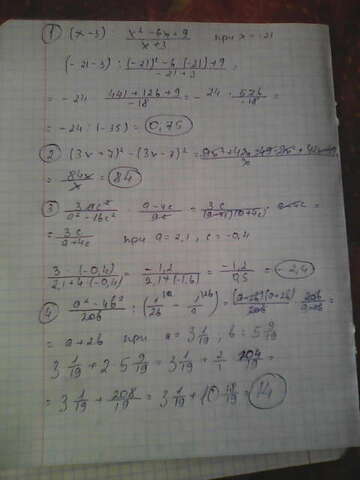 ① (x-3) : (x² - 6x + 9)/(x+3) при x = -21
(-21-3) : ((-21)² - 6·(-21) + 9)/(-21+3) =
= -24 : (441+126+9)/(-18) = -24 : 576/(-18) =
= -24 : (-35) = 0,75
② (3x+7)² - (3x-7)²
= 84x/x = 84
③ a-4c
= 3c/(a+4c) при a = 2,1, c = -0,4
3·(-0,4)/(2,1+4·(-0,4)) = -1,2/(2,1+(-1,6)) = -1,2/0,5 = -2,4
④ (a² - 4b²)/2ab : (1/2b - 1/a) = (a-2b)(a+2b)/2ab · 2ab/(a-2b) =
= a+2b при a = 3 1/19, b = 5 9/19
3 1/19 + 2·5 9/19 = 3 1/19 + 2/1 · 104/19 =
= 3 1/19 + 208/19 = 3 1/19 + 10 18/19 = 14